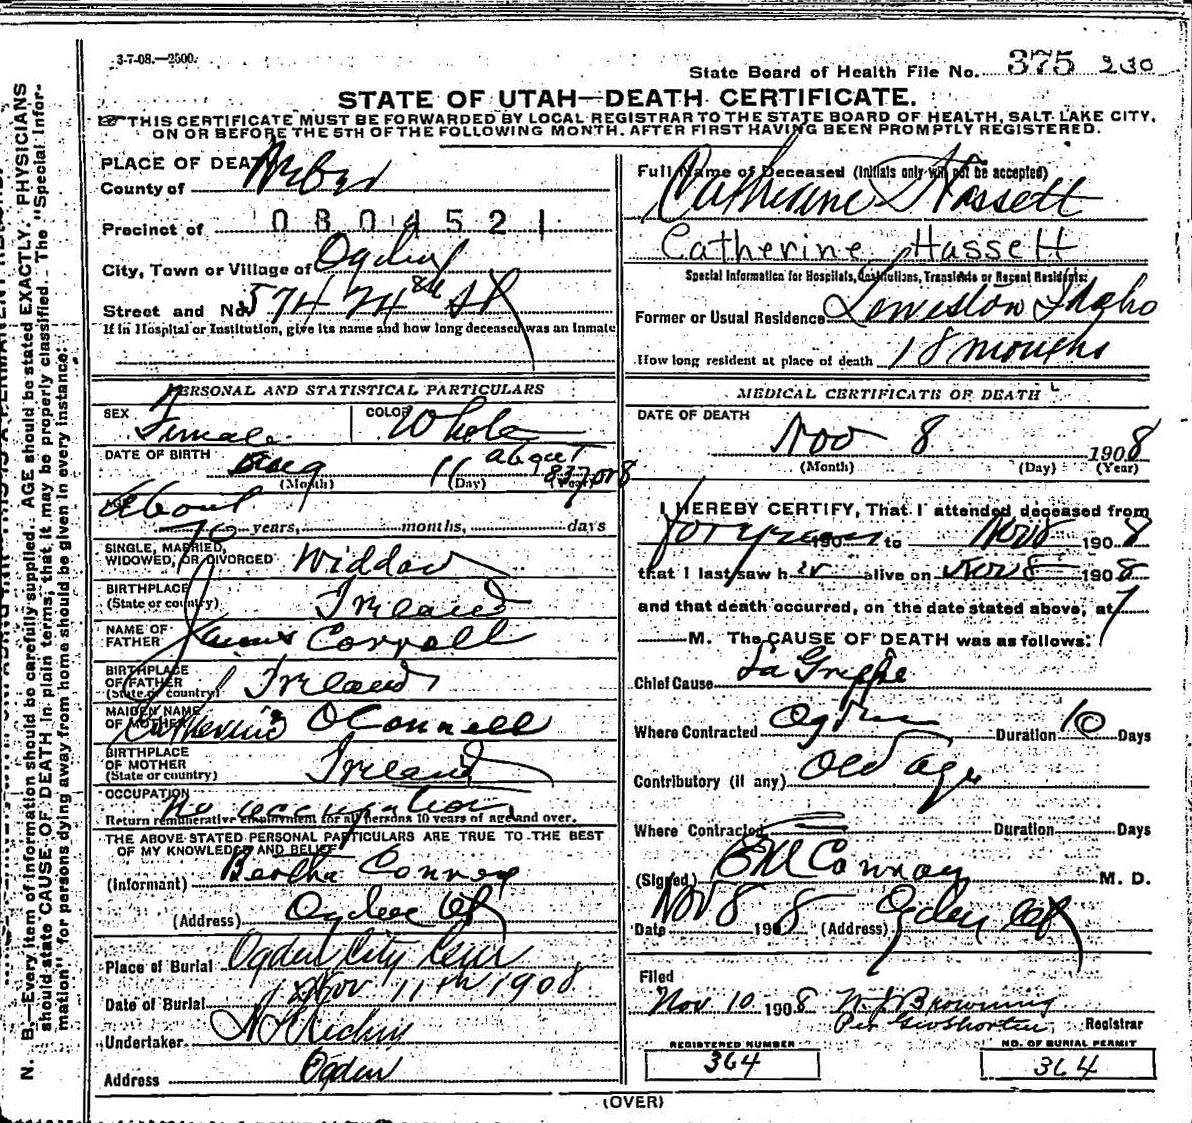 3-7-08.—2500.
State Board of Health File No. 375 230
STATE OF UTAH—DEATH CERTIFICATE.
THIS CERTIFICATE MUST BE FORWARDED BY LOCAL REGISTRAR TO THE STATE BOARD OF HEALTH, SALT LAKE CITY,
ON OR BEFORE THE 5TH OF THE FOLLOWING MONTH. AFTER FIRST HAVING BEEN PROMPTLY REGISTERED.
PLACE OF DEATH
County of Weber
Precinct of 0804521
City, Town or Village of Ogden
Street and No. 574 24th St
If in Hospital or Institution, give its name and how long deceased was an Inmate
Full Name of Deceased (Initials only will not be accepted)
Catherine Hassett
Catherine Hassett
Special Information for Hospitals, Institutions, Transients or Recent Residents:
Former or Usual Residence Lewiston Idaho
How long resident at place of death 18 months
PERSONAL AND STATISTICAL PARTICULARS
SEX Female COLOR White
DATE OF BIRTH 11 about 837 or 8
(Month) (Day) (Year)
About 70 years, months, days
SINGLE, MARRIED,
WIDOWED, OR DIVORCED Widdow
BIRTHPLACE
(State or country) Ireland
NAME OF
FATHER James Corroll
BIRTHPLACE
OF FATHER
(State or country) Ireland
MAIDEN NAME
OF MOTHER Catherine OConnell
BIRTHPLACE
OF MOTHER
(State or country) Ireland
OCCUPATION No occupation
Return remunerative employment for all persons 10 years of age and over.
THE ABOVE STATED PERSONAL PARTICULARS ARE TRUE TO THE BEST
OF MY KNOWLEDGE AND BELIEF
(Informant) Bertha Conroy
(Address) Ogden Ut
Place of Burial Ogden City Cem
Date of Burial Nov 11th 1908
Undertaker
Address Ogden
MEDICAL CERTIFICATE OF DEATH
DATE OF DEATH
Nov 8 1908
(Month) (Day) (Year)
I HEREBY CERTIFY, That I attended deceased from
for year 190 to Nov 8 1908
that I last saw her alive on Nov 8 1908
and that death occurred, on the date stated above, at 7
M. The CAUSE OF DEATH was as follows:
Chief Cause La Grippe
Where Contracted Ogden Duration 10 Days
Contributory (if any) Old age
Where Contracted Duration Days
(Signed) E M Conroy M. D.
Date Nov 8 1908 (Address) Ogden Ut
Filed
Nov 10 1908 Browning
Per Geo Shorten, Registrar
REGISTERED NUMBER
364
NO. OF BURIAL PERMIT
364
(OVER)
N. B.—Every item of information should be carefully supplied. AGE should be stated EXACTLY. PHYSICIANS
should state CAUSE OF DEATH in plain terms, that it may be properly classified. The "Special Infor-
mation" for persons dying away from home should be given in every instance.